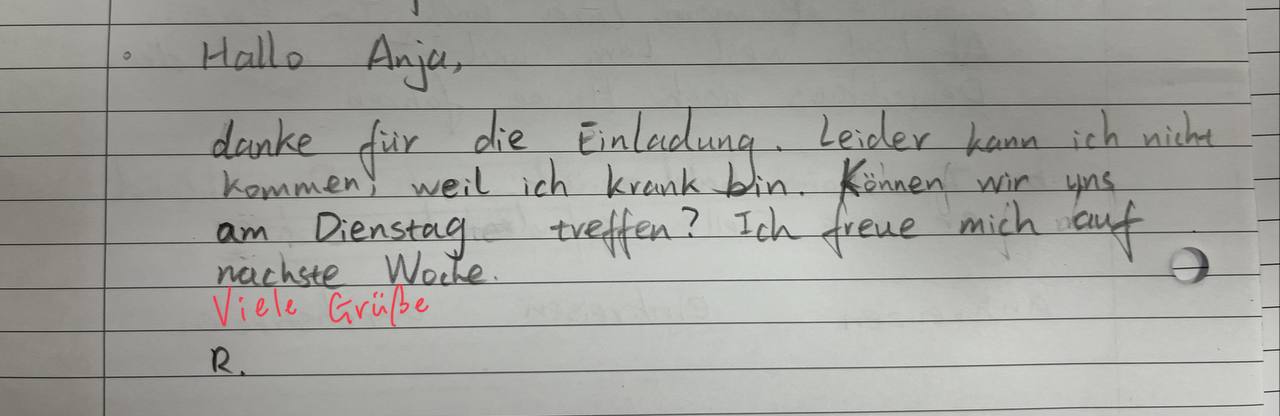 Hallo Anja,
danke für die Einladung. Leider kann ich nicht
kommen, weil ich krank bin. Können wir uns
am Dienstag treffen? Ich freue mich auf
nächste Woche.
Viele Grüße
R.